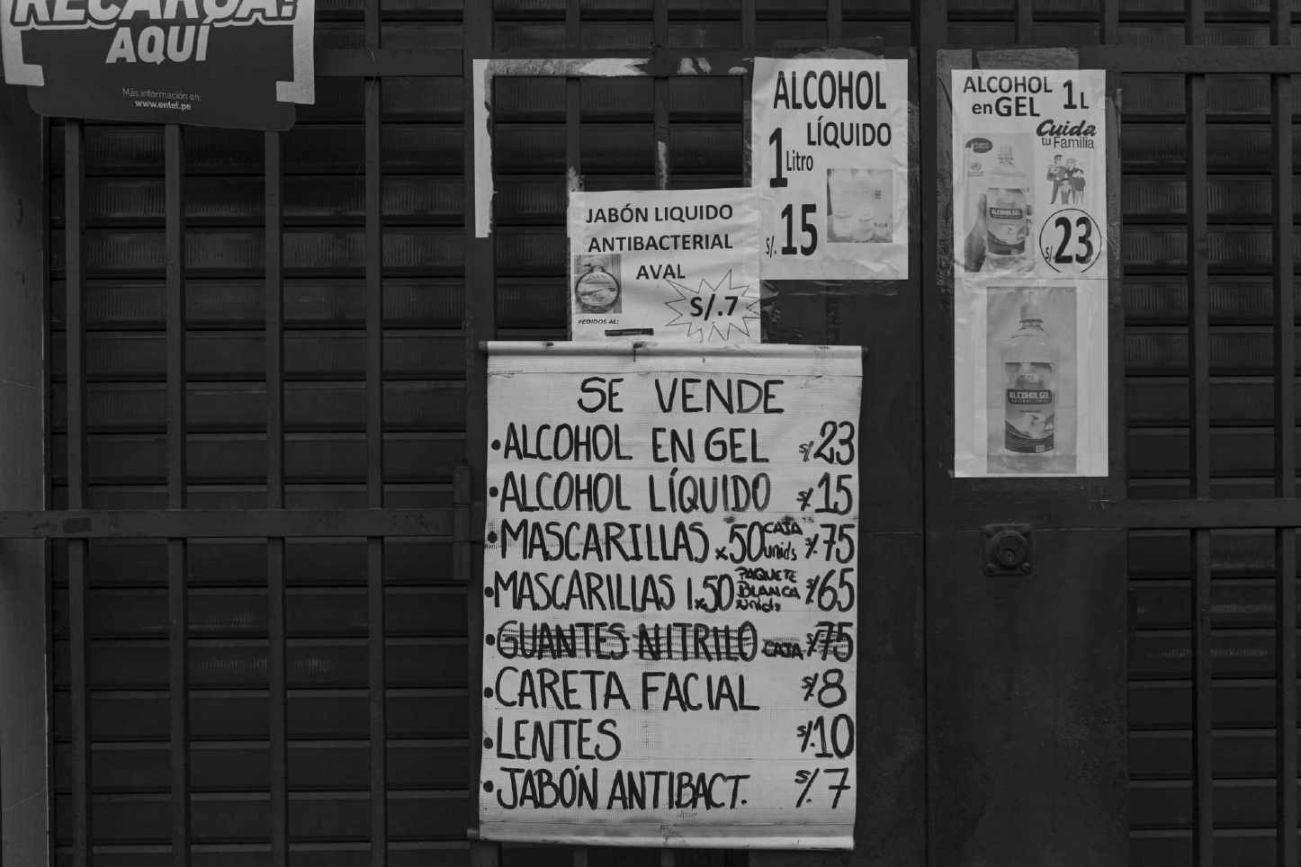 RECARGA!
AQUÍ
Más información en:
www.entel.pe
JABÓN LIQUIDO
ANTIBACTERIAL
AVAL
S/.7
PEDIDOS AL:
ALCOHOL
LÍQUIDO
1 Litro
S/. 15
ALCOHOL
en GEL 1 L
Cuida
tu Familia
S/. 23
ALCOHOLGEL
ALCOHOLGEL
SE VENDE
•ALCOHOL EN GEL S/. 23
•ALCOHOL LÍQUIDO S/. 15
•MASCARILLAS x50 CAJA unids S/. 75
•MASCARILLAS 1.x50 PAQUETE BLANCA unids S/. 65
•GUANTES NITRILO CAJA S/. 75
•CARETA FACIAL S/. 8
•LENTES S/. 10
•JABÓN ANTIBACT. S/. 7